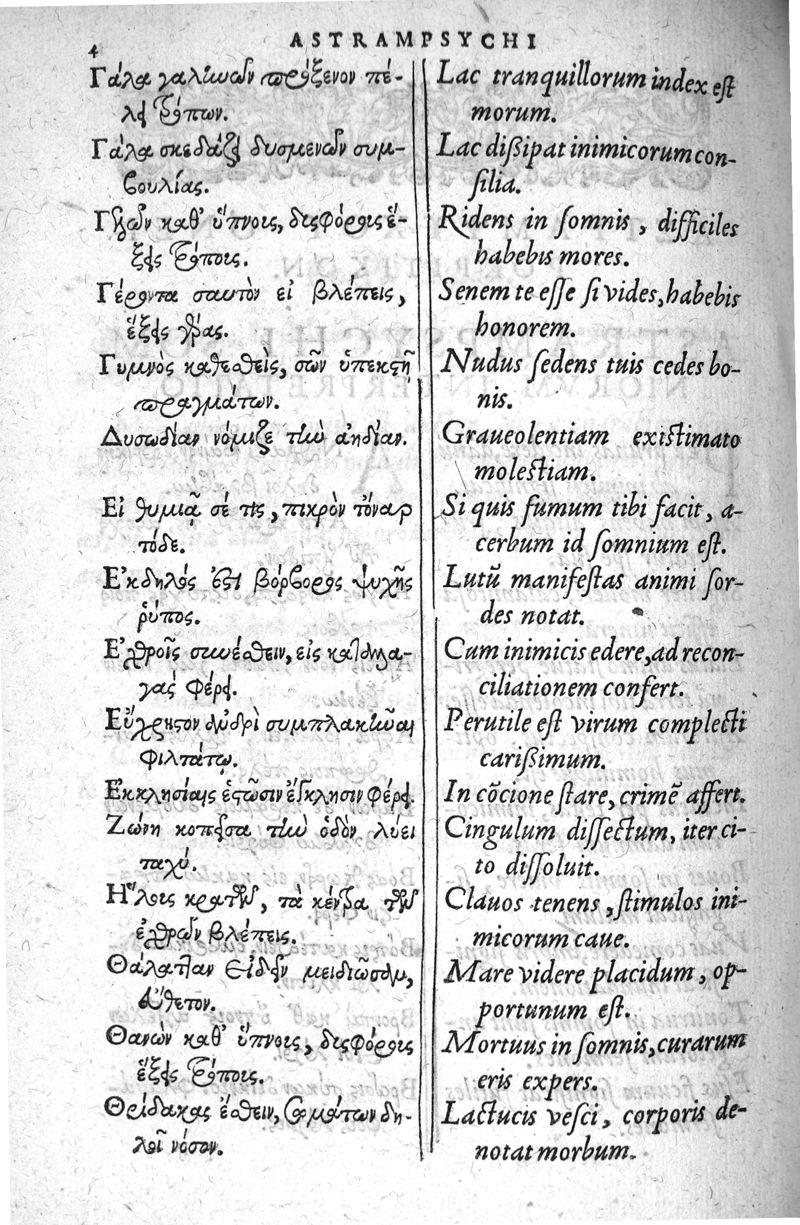 4
ASTRAMPSYCHI
Γάλα γαλιωῶν πρόξενον πέ-
λει τρόπων.
Γάλα σκεδάζει δυσμενῶν συμ-
βουλίας.
Γελῶν καθ' ὕπνοις, δυσφόροις ἕ-
ξεις τρόποις.
Γέροντα σαυτὸν εἰ βλέπεις,
ἕξεις γέρας.
Γυμνὸς καθεσθεὶς, σῶν ὑπεκστῇ
πραγμάτων.
Δυσωδίαν νόμιζε τὴν ἀηδίαν.
Εἰ θυμιᾷ σέ τις, πικρὸν τοὔναρ
τόδε.
Ἔκδηλός ἐστι βόρβορος ψυχῆς
ῥύπος.
Ἐχθροῖς συνέσθειν, εἰς καταλλα-
γὰς φέρει.
Εὔχρηστον ἀνδρὶ συμπλακῆναι
φιλτάτῳ.
Ἐκκλησίαις ἑστῶσιν ἔγκλησιν φέρει.
Ζώνη κοπεῖσα τὴν ὁδὸν λύει
ταχύ.
Ἥλοις κρατῶν, τὰ κέντρα τῶν
ἐχθρῶν βλέπεις.
Θάλατταν εἰδεῖν μειδιῶσαν,
εὔθετον.
Θανὼν καθ' ὕπνοις, δυσφόροις
ἕξεις τρόποις.
Θρίδακας ἔσθειν, σωμάτων δη-
λοῖ νόσον.
Lac tranquillorum index est
morum.
Lac dißipat inimicorum con-
silia.
Ridens in somnis, difficiles
habebis mores.
Senem te esse si vides, habebis
honorem.
Nudus sedens tuis cedes bo-
nis.
Graueolentiam existimato
molestiam.
Si quis fumum tibi facit, a-
cerbum id somnium est.
Lutū manifestas animi sor-
des notat.
Cum inimicis edere, ad recon-
ciliationem confert.
Perutile est virum complecti
carißimum.
In cōcione stare, crimē affert.
Cingulum dissectum, iter ci-
to dissoluit.
Clauos tenens, stimulos ini-
micorum caue.
Mare videre placidum, op-
portunum est.
Mortuus in somnis, curarum
eris expers.
Lactucis vesci, corporis de-
notat morbum.